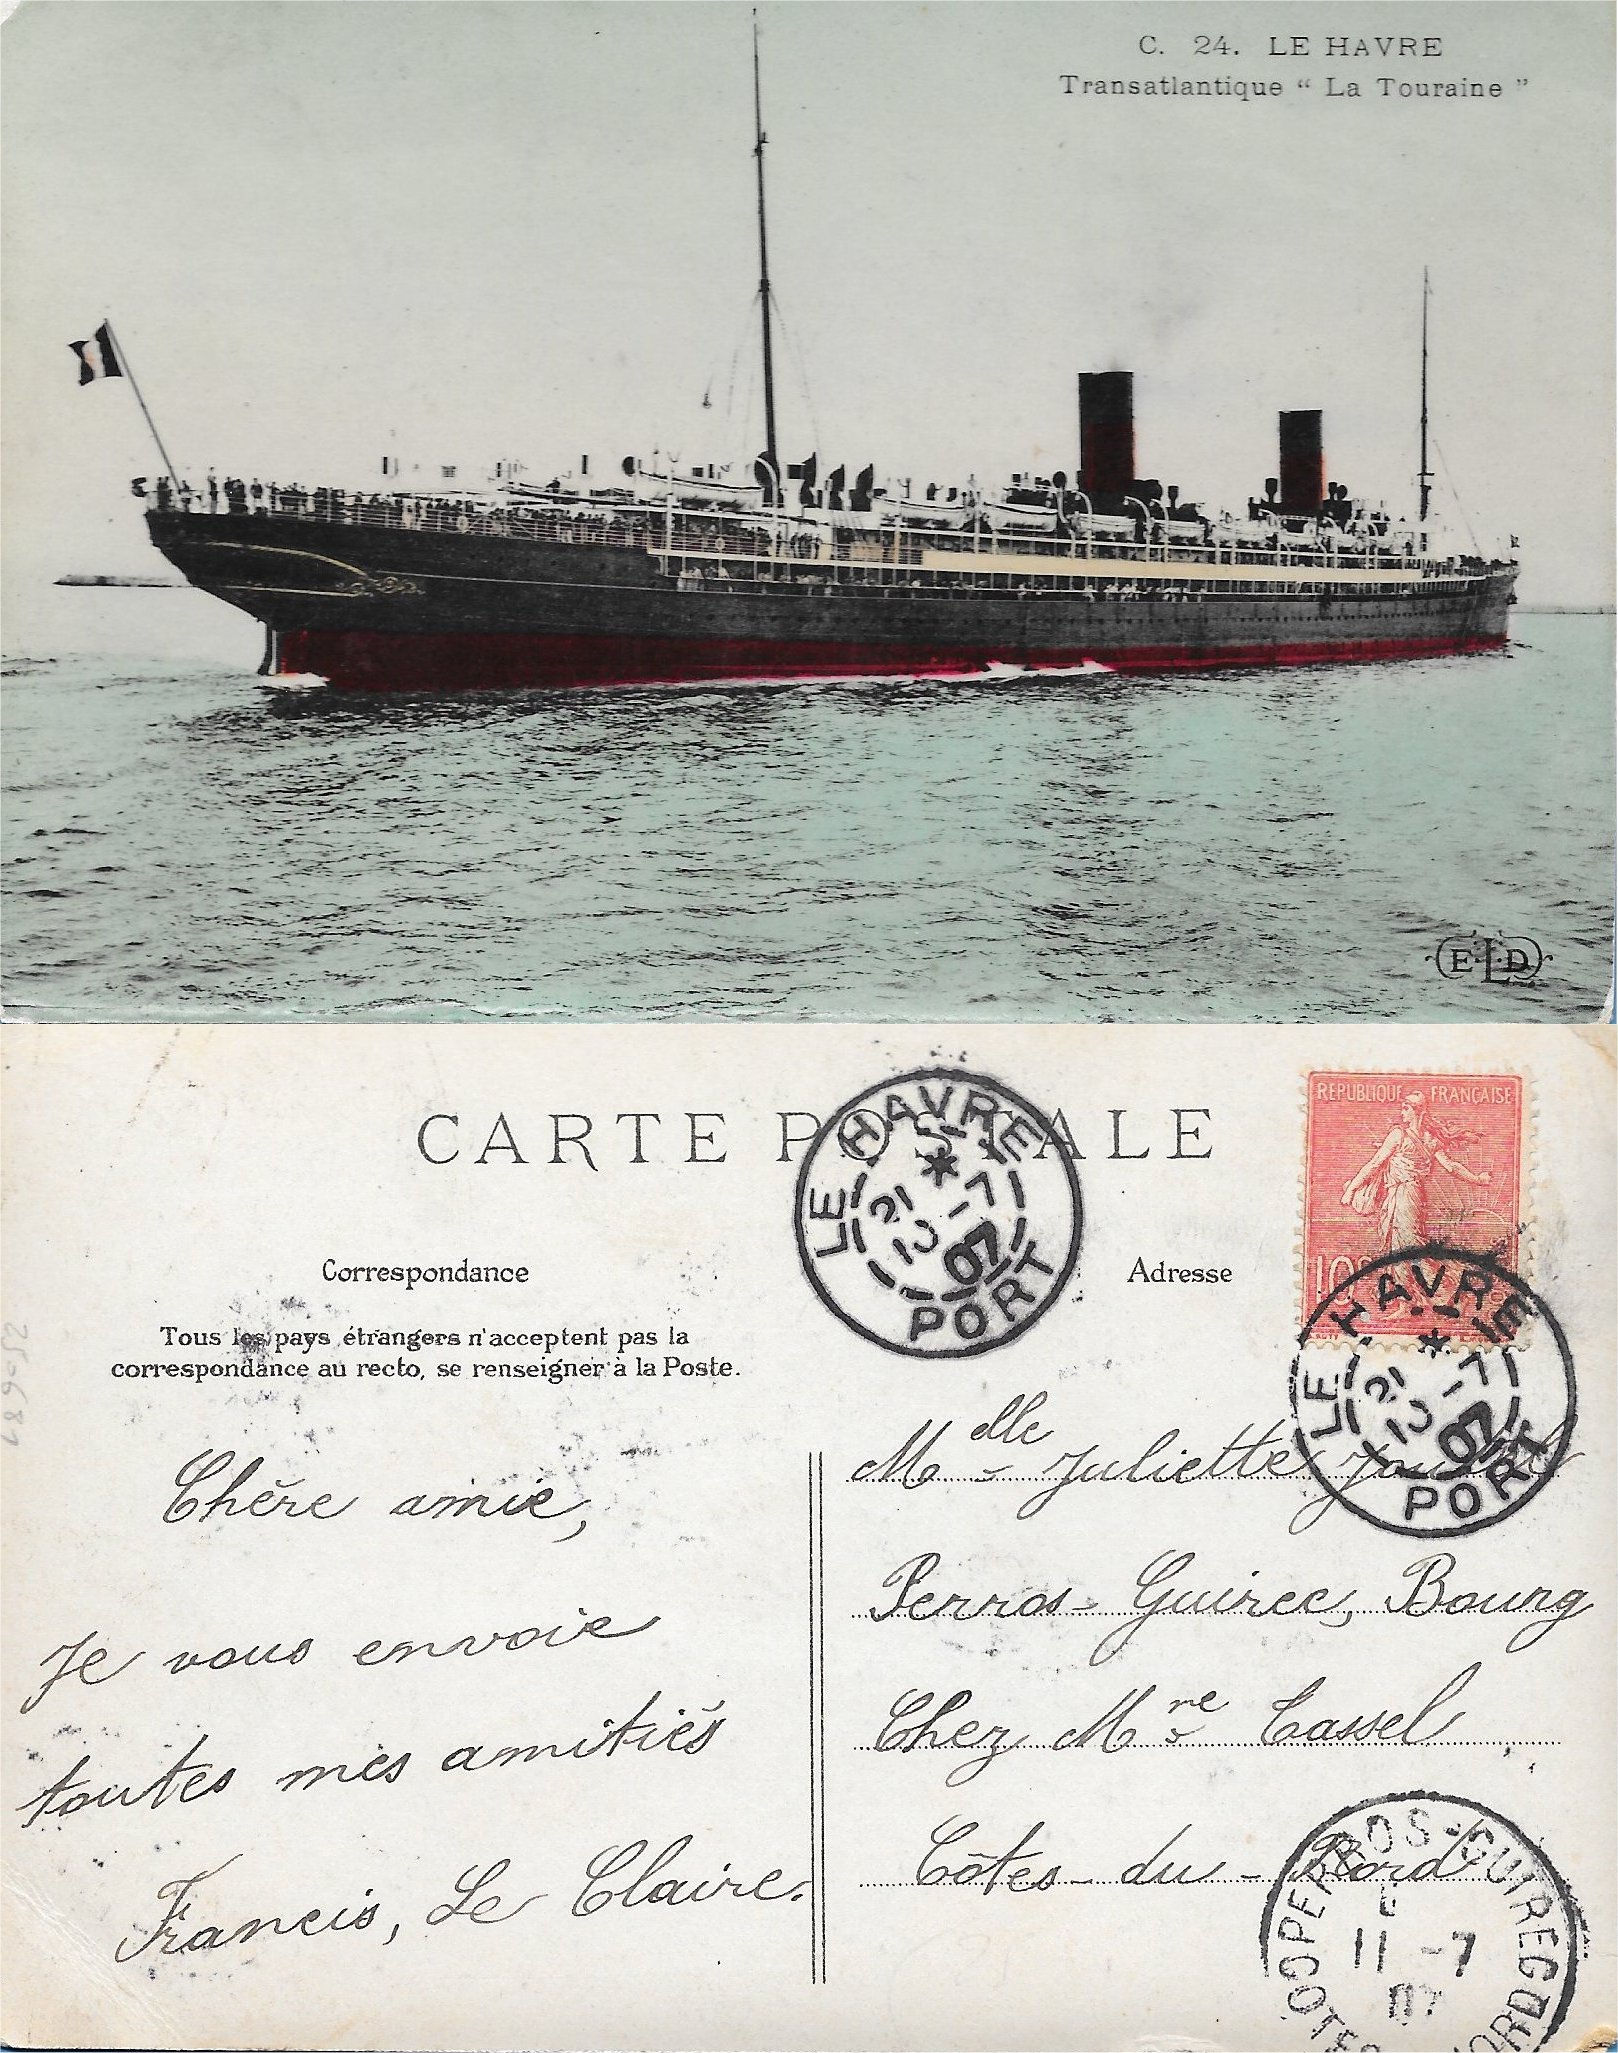 C. 24. LE HAVRE
Transatlantique “ La Touraine ”
E.L.D
CARTE POSTALE
LE HAVRE
21
10 -7
07
PORT
REPUBLIQUE FRANÇAISE
10
Correspondance
Adresse
Tous les pays étrangers n'acceptent pas la
correspondance au recto, se renseigner à la Poste.
LE HAVRE
21
10 -7
07
PORT
Chère amie,
Je vous envoie
toutes mes amitiés
Francis, Le Claire.
Mdlle Juliette
Perros-Guirec, Bourg
Chez Mre Cassel
Côtes-du-Nord
PERROS-GUIREC
11 -7
07